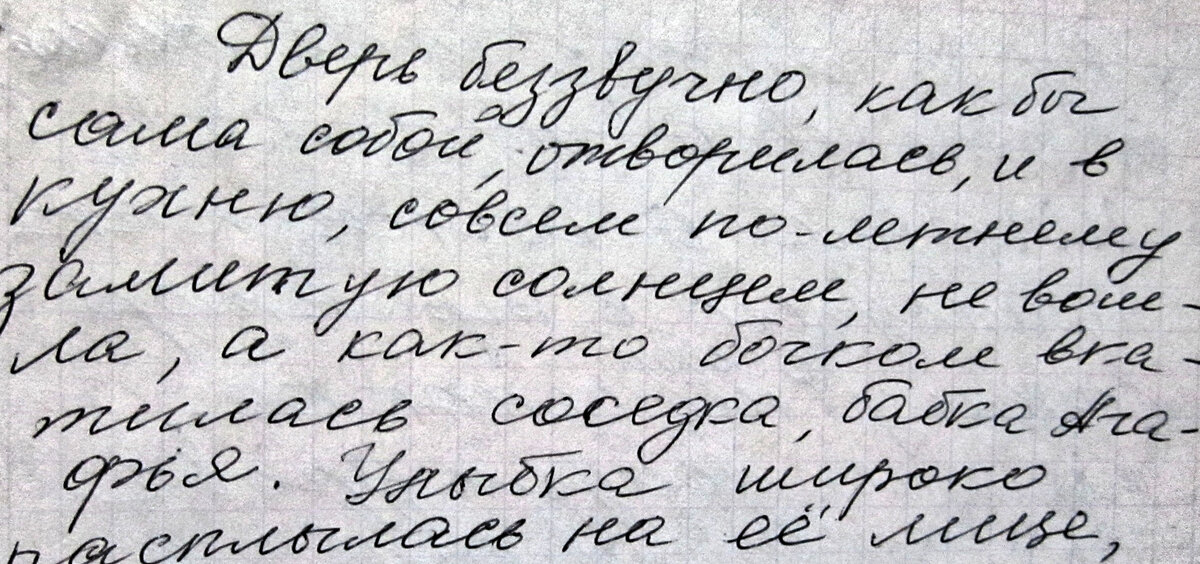 Дверь беззвучно, как бы
сама собой, отворилась, и в
кухню, совсем по-летнему
залитую солнцем, не вош-
ла, а как-то бочком вка-
тилась соседка, бабка Ага-
фья. Улыбка широко
расплылась на её лице,